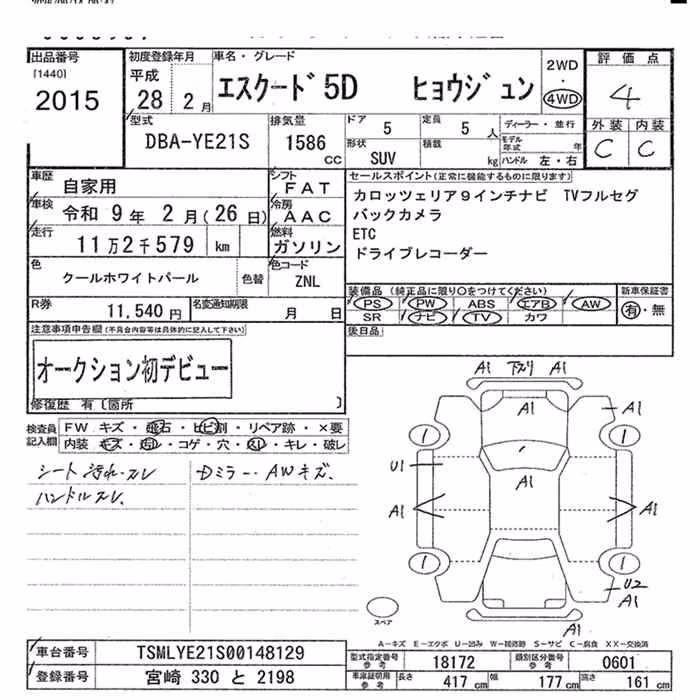 出品番号 [1440] 2015
初度登録年月 平成 28 2月
車名・グレード エスクード 5D ヒョウジュン
2WD・4WD
評価点 4
外装 C 内装 C
型式 DBA-YE21S
排気量 1586 CC
ドア 5 定員 5 人
形状 SUV 積載 kg
ディーラー・並行
モデル年式 年
ハンドル 左・右
車歴 自家用
シフト FAT
車検 令和 9年 2月(26日)
冷房 AAC
走行 11万2千579 km
燃料 ガソリン
色 クールホワイトパール 色替
色コード ZNL
R券 11,540円
名変通知期限 月 日
セールスポイント(正常に機能するものに限ります)
カロッツェリア9インチナビ TVフルセグ
バックカメラ
ETC
ドライブレコーダー
装備品 (純正品に限り○をつけてください) 新車保証書
PS PW ABS エアB AW 有・無
SR ナビ TV カワ
後日品
注意事項申告欄(不具合内容等は具体的に記入して下さい)
オークション初デビュー
修復歴 有〔箇所 〕
検査員記入欄
FW キズ・飛石・ヒビ割・リペア跡・×要
内装・キズ・汚れ・コゲ・穴・スレ・キレ・破レ
シート汚れ・スレ
ハンドルスレ、
Dミラー・AWキズ、
A1 下スリ A1
A1 A1
1 1
U1
A1
A1 A1
1 1
U2
A1
A1
スペア
A-キズ E-エクボ U-凹み W-補修跡 S-サビ C-腐食 XX-交換済
車台番号 TSMLYE21S00148129
登録番号 宮崎 330 と 2198
型式指定番号 参考 18172 類別区分番号 参考 0601
車庫証明用 参考 長さ 417 cm 幅 177 cm 高さ 161 cm